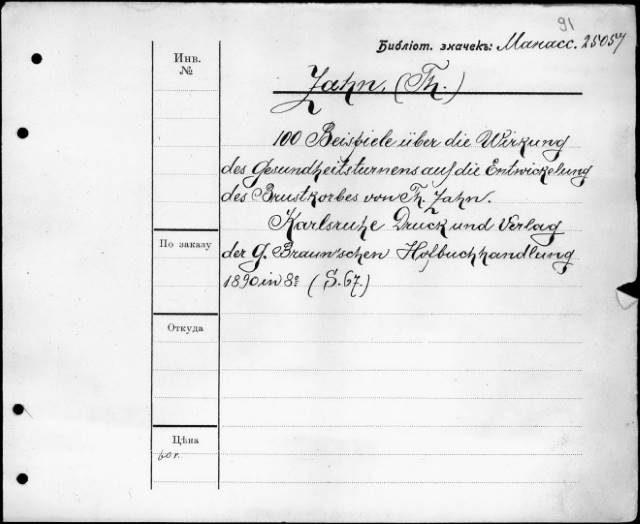 91
Библіот. значекъ: Манасс. 25057
Инв.
№
Zahn. (Th.)
100 Beispiele über die Wirkung
des Gesundheitsturnens auf die Entwickelung
des Brustkorbes von Th. Zahn.
Karlsruhe Druck und Verlag
der G. Braun'schen Hofbuchhandlung
1890 in 8º (S. 67.)
По заказу
Откуда
Цѣна
60 г.